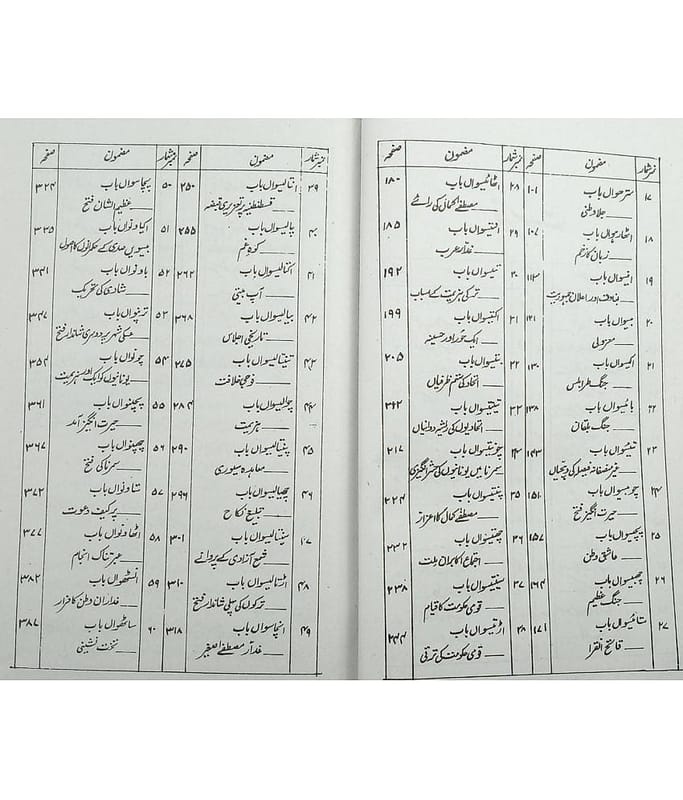 نمبر شمار مضمون صفحہ نمبر شمار مضمون صفحہ
۱۷ سترھواں باب ۱۰۱
جلا وطنی
۱۸ اٹھارہواں باب ۱۰۷
زبان کا زخم
۱۹ انیسواں باب ۱۱۳
بغاوت اور اعلان جمہوریت
۲۰ بیسواں باب ۱۲۱
معزولی
۲۱ اکیسواں باب ۱۳۰
جنگ طرابلس
۲۲ بائیسواں باب ۱۳۸
جنگ بلقان
۲۳ تیئسواں باب ۱۴۳
غیر منصفانہ فیصلہ کی دھجیاں
۲۴ چوبیسواں باب ۱۵۱
حیرت انگیز فتح
۲۵ پچیسواں باب ۱۵۷
عاشق وطن
۲۶ چھبیسواں باب ۱۶۴
جنگ عظیم
۲۷ ستائیسواں باب ۱۷۱
فاتح القرا
۲۸ اٹھائیسواں باب ۱۸۰
مصطفےٰ کمال کی رائے
۲۹ انتیسواں باب ۱۸۵
غدار عرب
۳۰ تیسواں باب ۱۹۲
ترکی ہزیمت کے اسباب
۳۱ اکتیسواں باب ۱۹۹
ایک حور اور حسینہ
۳۲ بتیسواں باب ۲۰۵
اتحادکی ستم ظریفیاں
۳۳ تینتیسواں باب ۲۱۲
اتحادیوں کی ریشہ دوانیاں
۳۴ چونتیسواں باب ۲۱۷
سمرنا میں یونانیوں کی شر انگیزی
۳۵ پینتیسواں باب ۲۲۴
مصطفےٰ کمال کا اعزاز
۳۶ چھتیسواں باب ۲۳۲
اجتماع اکابران ملت
۳۷ سینتیسواں باب ۲۳۸
قومی حکومت کا قیام
۳۸ اڑتیسواں باب ۲۴۴
قومی حکومت کی ترقی
نمبر شمار مضمون صفحہ نمبر شمار مضمون صفحہ
۳۹ انتالیسواں باب ۲۵۰
قسطنطنیہ پر تعزیری قبضہ
۴۰ چالیسواں باب ۲۵۵
کوہ غم
۴۱ اکتالیسواں باب ۲۶۲
آپ بیتی
۴۲ بیالیسواں باب ۲۶۸
تاریخی اجلاس
۴۳ تینتالیسواں باب ۲۷۵
فوجی خلافت
۴۴ چوالیسواں باب ۲۸۴
ہزیمت
۴۵ پینتالیسواں باب ۲۹۰
معاہدہ سیوری
۴۶ چھیالیسواں باب ۲۹۶
تبلیغ نکاح
۴۷ سینتالیسواں باب ۳۰۱
شمع آزادی کے پروانے
۴۸ اڑتالیسواں باب ۳۱۰
ترکوں کی پہلی شاندار فتح
۴۹ انچاسواں باب ۳۱۸
غدار مصطفےٰ صغیر
۵۰ پچاسواں باب ۳۲۴
عظیم الشان فتح
۵۱ اکیاونواں باب ۳۳۵
بیسویں صدی کے حکمرانوں کا اصول
۵۲ باونواں باب ۳۴۱
شادی کی تحریک
۵۳ ترپنواں باب ۳۴۷
عسکی شہر پر دوسری شاندار فتح
۵۴ چونواں باب ۳۵۴
یونانیوں کو ایک اور ہزیمت
۵۵ پچپنواں باب ۳۶۱
حیرت انگیز آمد
۵۶ چھپنواں باب ۳۶۷
سمرنا کی فتح
۵۷ ستاونواں باب ۳۷۲
پرکیف دعوت
۵۸ اٹھاونواں باب ۳۷۷
عبرتناک انجام
۵۹ انسٹھواں باب ۳۸۲
غداران وطن کا فرار
۶۰ ساٹھواں باب ۳۸۷
تخت نشینی